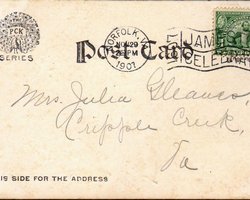 PCK
SERIES
Post Card
NORFOLK, VA
NOV 29
PM
1907
JAM
CELE
Mrs. Julia
Cripple Creek,
Va
IS SIDE FOR THE ADDRESS